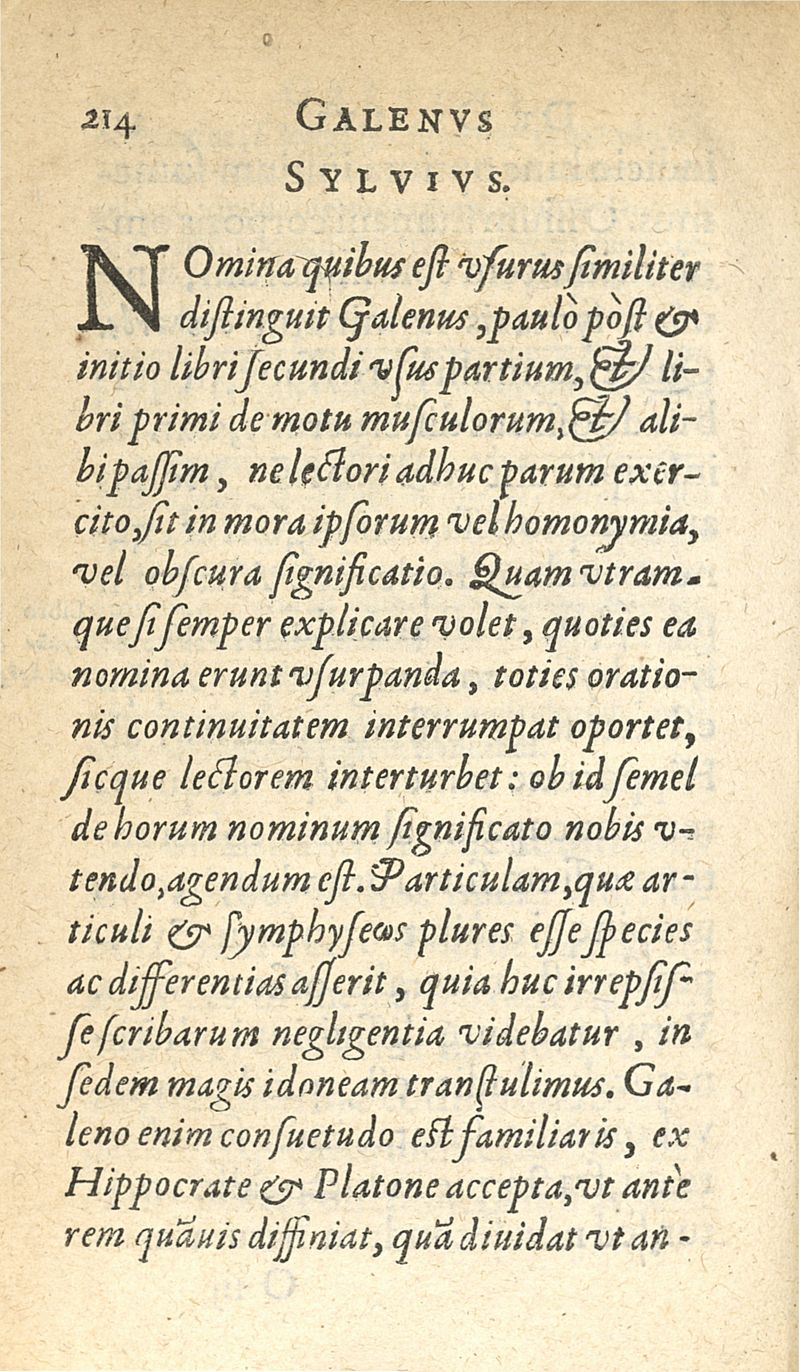 214 GALENVS
SYLVIVS.
NOmina quibus est vſurus ſimiliter
diſtinguit Galenus, paulò pòſt &
initio libri ſecundi vſus partium, & li-
bri primi de motu muſculorum, & ali-
bi paſſim, ne lectori adhuc parum exer-
cito, ſit in mora ipſorum vel homonymia,
vel obſcura ſignificatio. Quam vtram-
que ſi ſemper explicare volet, quoties ea
nomina erunt vſurpanda, toties oratio-
nis continuitatem interrumpat oportet,
ſicque lectorem interturbet: ob id ſemel
de horum nominum ſignificato nobis v-
tendo, agendum eſt. Particulam, quæ ar-
ticuli & ſymphyſeωs plures eſſe ſpecies
ac differentias aſſerit, quia huc irrepſiſ-
ſe ſcribarum negligentia videbatur, in
ſedem magis idoneam tranſtulimus. Ga-
leno enim conſuetudo eſt familiaris, ex
Hippocrate & Platone accepta, vt antè
rem quãuis diffiniat, quã diuidat vt an-